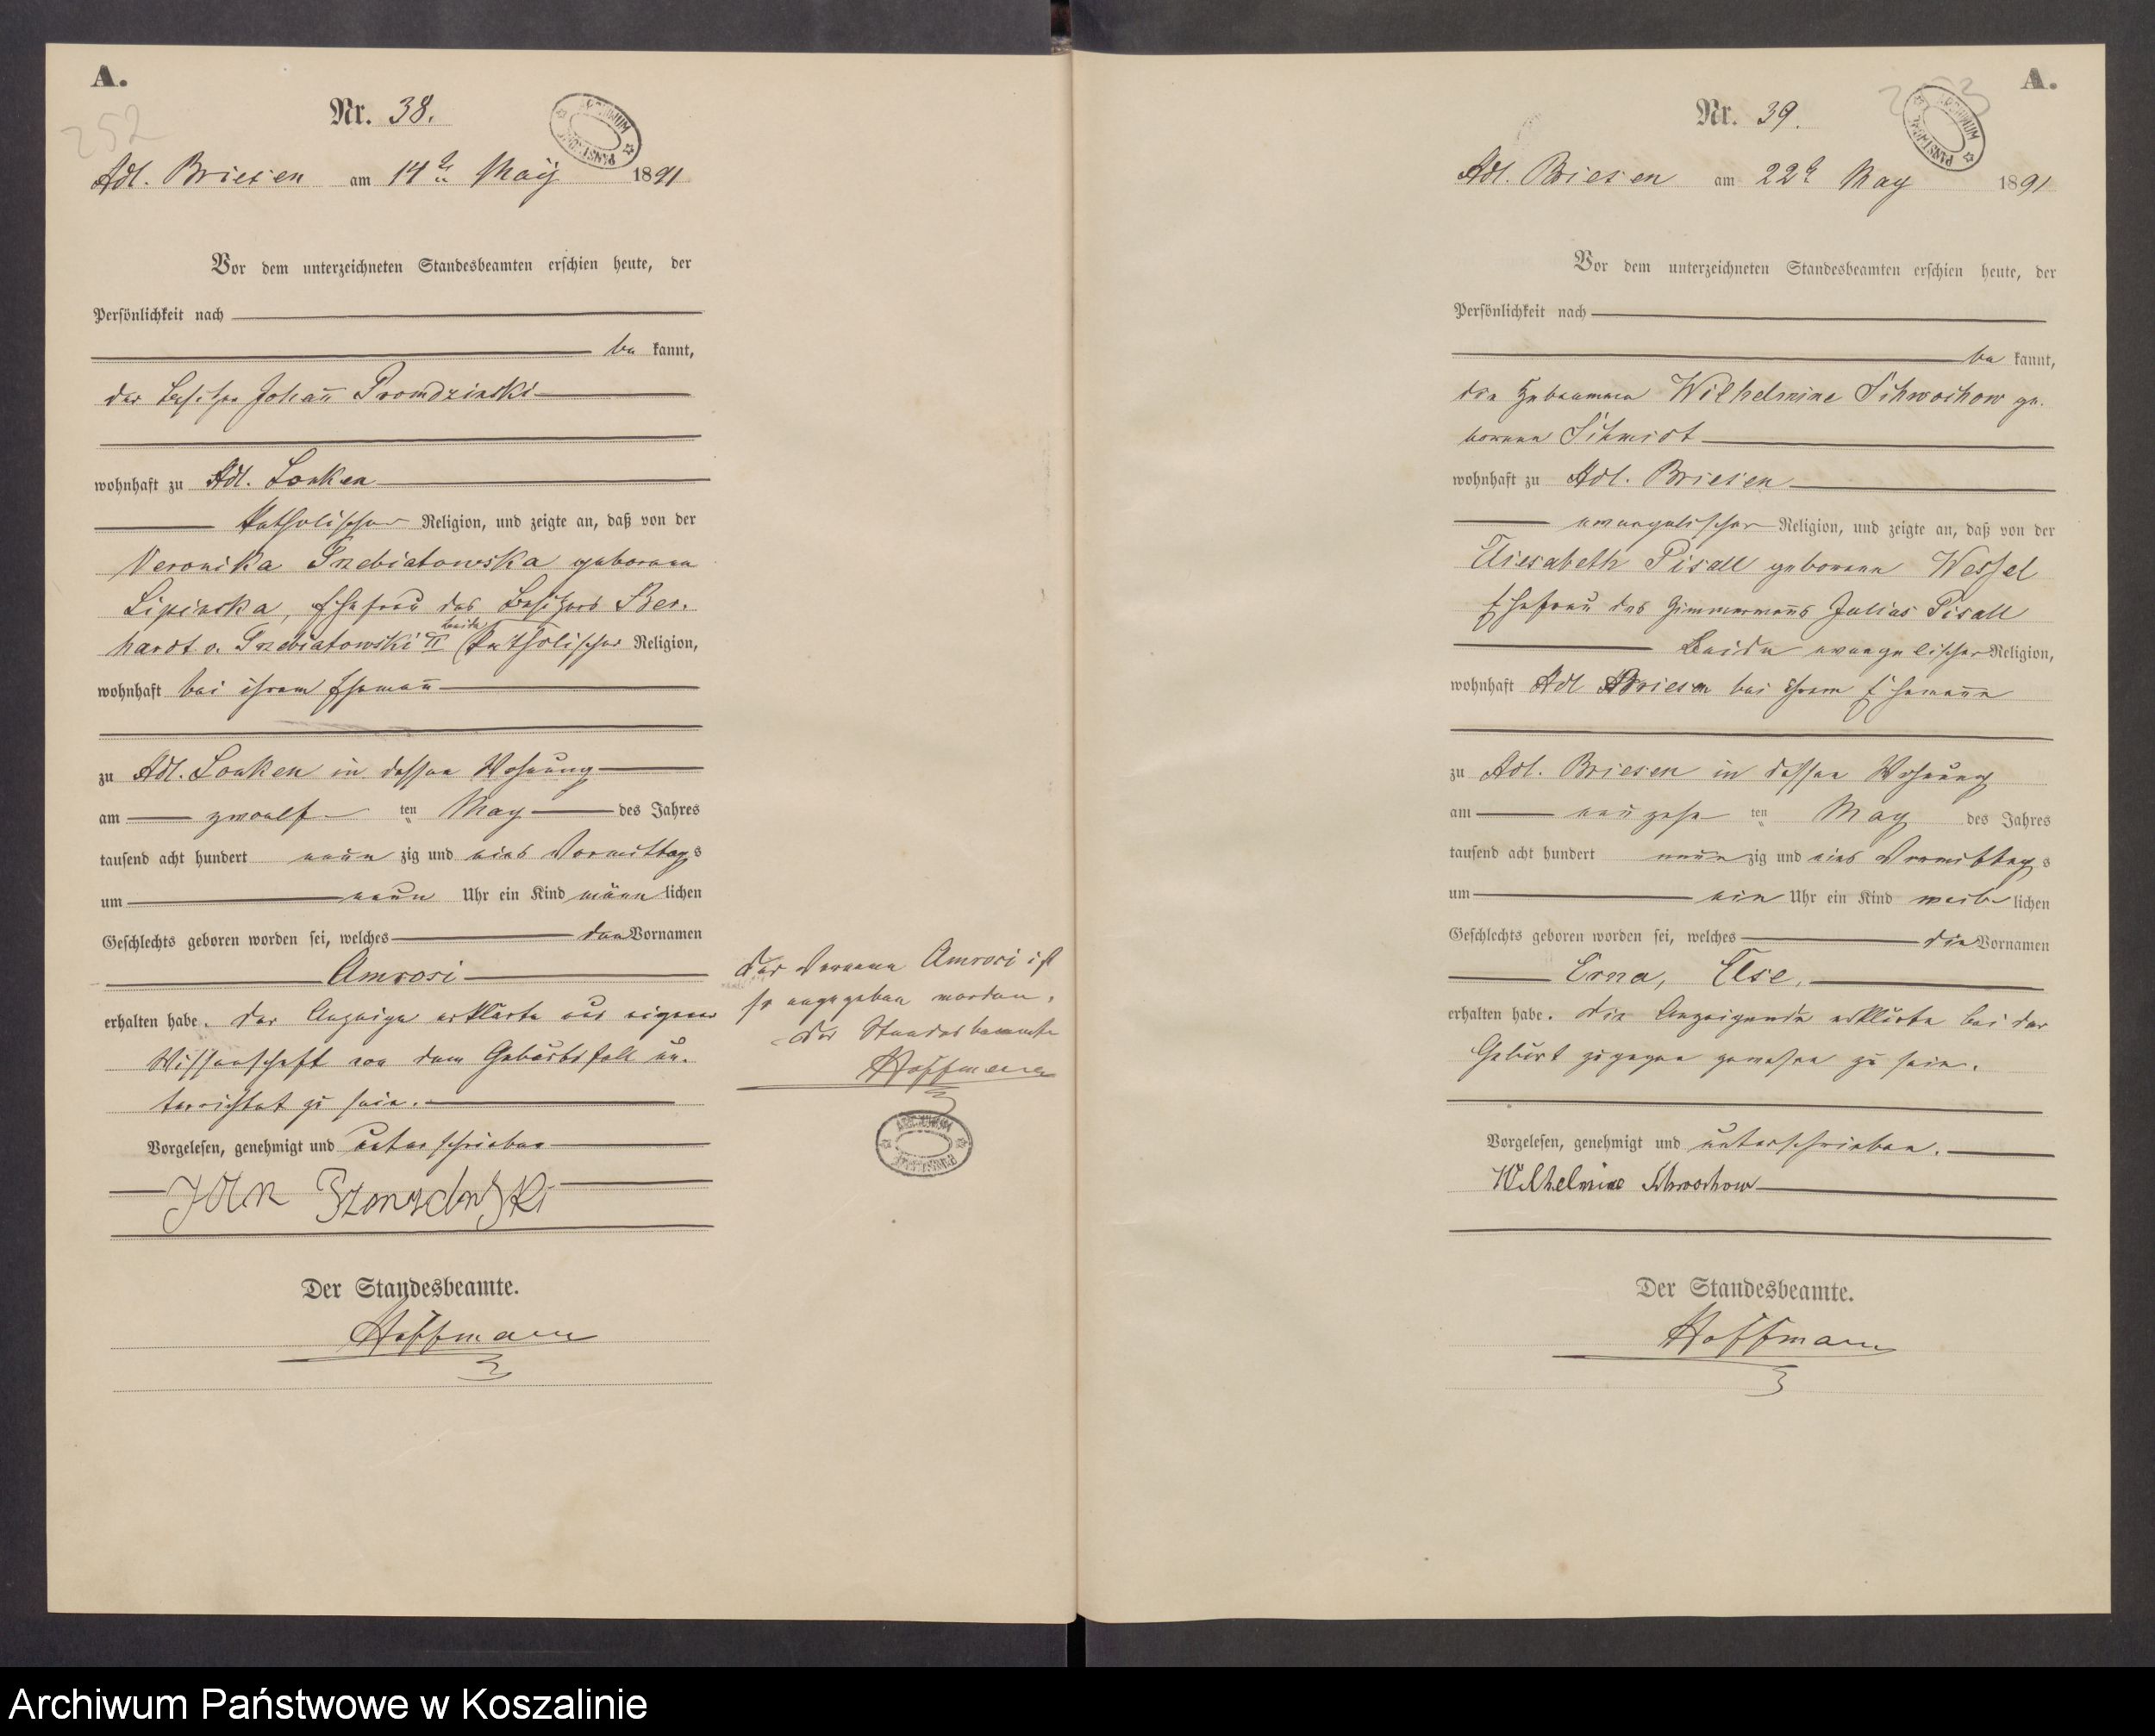 A.
252
Nr. 38.
ARCHIWUM PAŃSTWOWE
Adl. Briesen am 14ten May 1891
Vor dem unterzeichneten Standesbeamten erschien heute, der
Persönlichkeit nach
be kannt,
der Besitzer Johann
wohnhaft zu Adl. Lonken
katholischer Religion, und zeigte an, daß von der
Veronika Trzebiatowska geborene
Lipinska, Ehefrau des Besitzers Ber-
hardt v. Trzebiatowski II beide katholischer Religion,
wohnhaft bei ihrem Ehemann
zu Adl. Lonken in dessen Wohnung
am zwoelf ten May des Jahres
tausend acht hundert neun zig und eins Vormittags
um neun Uhr ein Kind männ lichen
Geschlechts geboren worden sei, welches den Vornamen
Amrosi
erhalten habe. Der Anzeiger erklärte aus eigener
Wissenschaft von dem Geburtsfall un-
terrichtet zu sein.
Vorgelesen, genehmigt und unterschrieben
Jan
Der Standesbeamte.
Hoffmann
Der Vorname Amrosi ist
so angegeben worden.
Der Standesbeamte
Hoffmann
ARCHIWUM PAŃSTWOWE
A.
253
Nr. 39.
ARCHIWUM PAŃSTWOWE
Adl. Briesen am 22t May 1891
Vor dem unterzeichneten Standesbeamten erschien heute, der
Persönlichkeit nach
be kannt,
die Hebeamme Wilhelmine Schwochow ge-
borene Schmidt
wohnhaft zu Adl. Briesen
evangelischer Religion, und zeigte an, daß von der
Elisabeth Pisall geborene Wessel
Ehefrau des Zimmermanns Julius Pisall
Beide evangelischer Religion,
wohnhaft Adl Briesen bei ihrem Ehemanne
zu Adl. Briesen in dessen Wohnung
am neunzehn ten May des Jahres
tausend acht hundert neun zig und eins Vormittags
um ein Uhr ein Kind weib lichen
Geschlechts geboren worden sei, welches die Vornamen
Erna, Else.
erhalten habe. Die Anzeigende erklärte bei der
Geburt zugegen gewesen zu sein.
Vorgelesen, genehmigt und unterschrieben.
Wilhelmine Schwochow
Der Standesbeamte.
Hoffmann
Archiwum Państwowe w Koszalinie